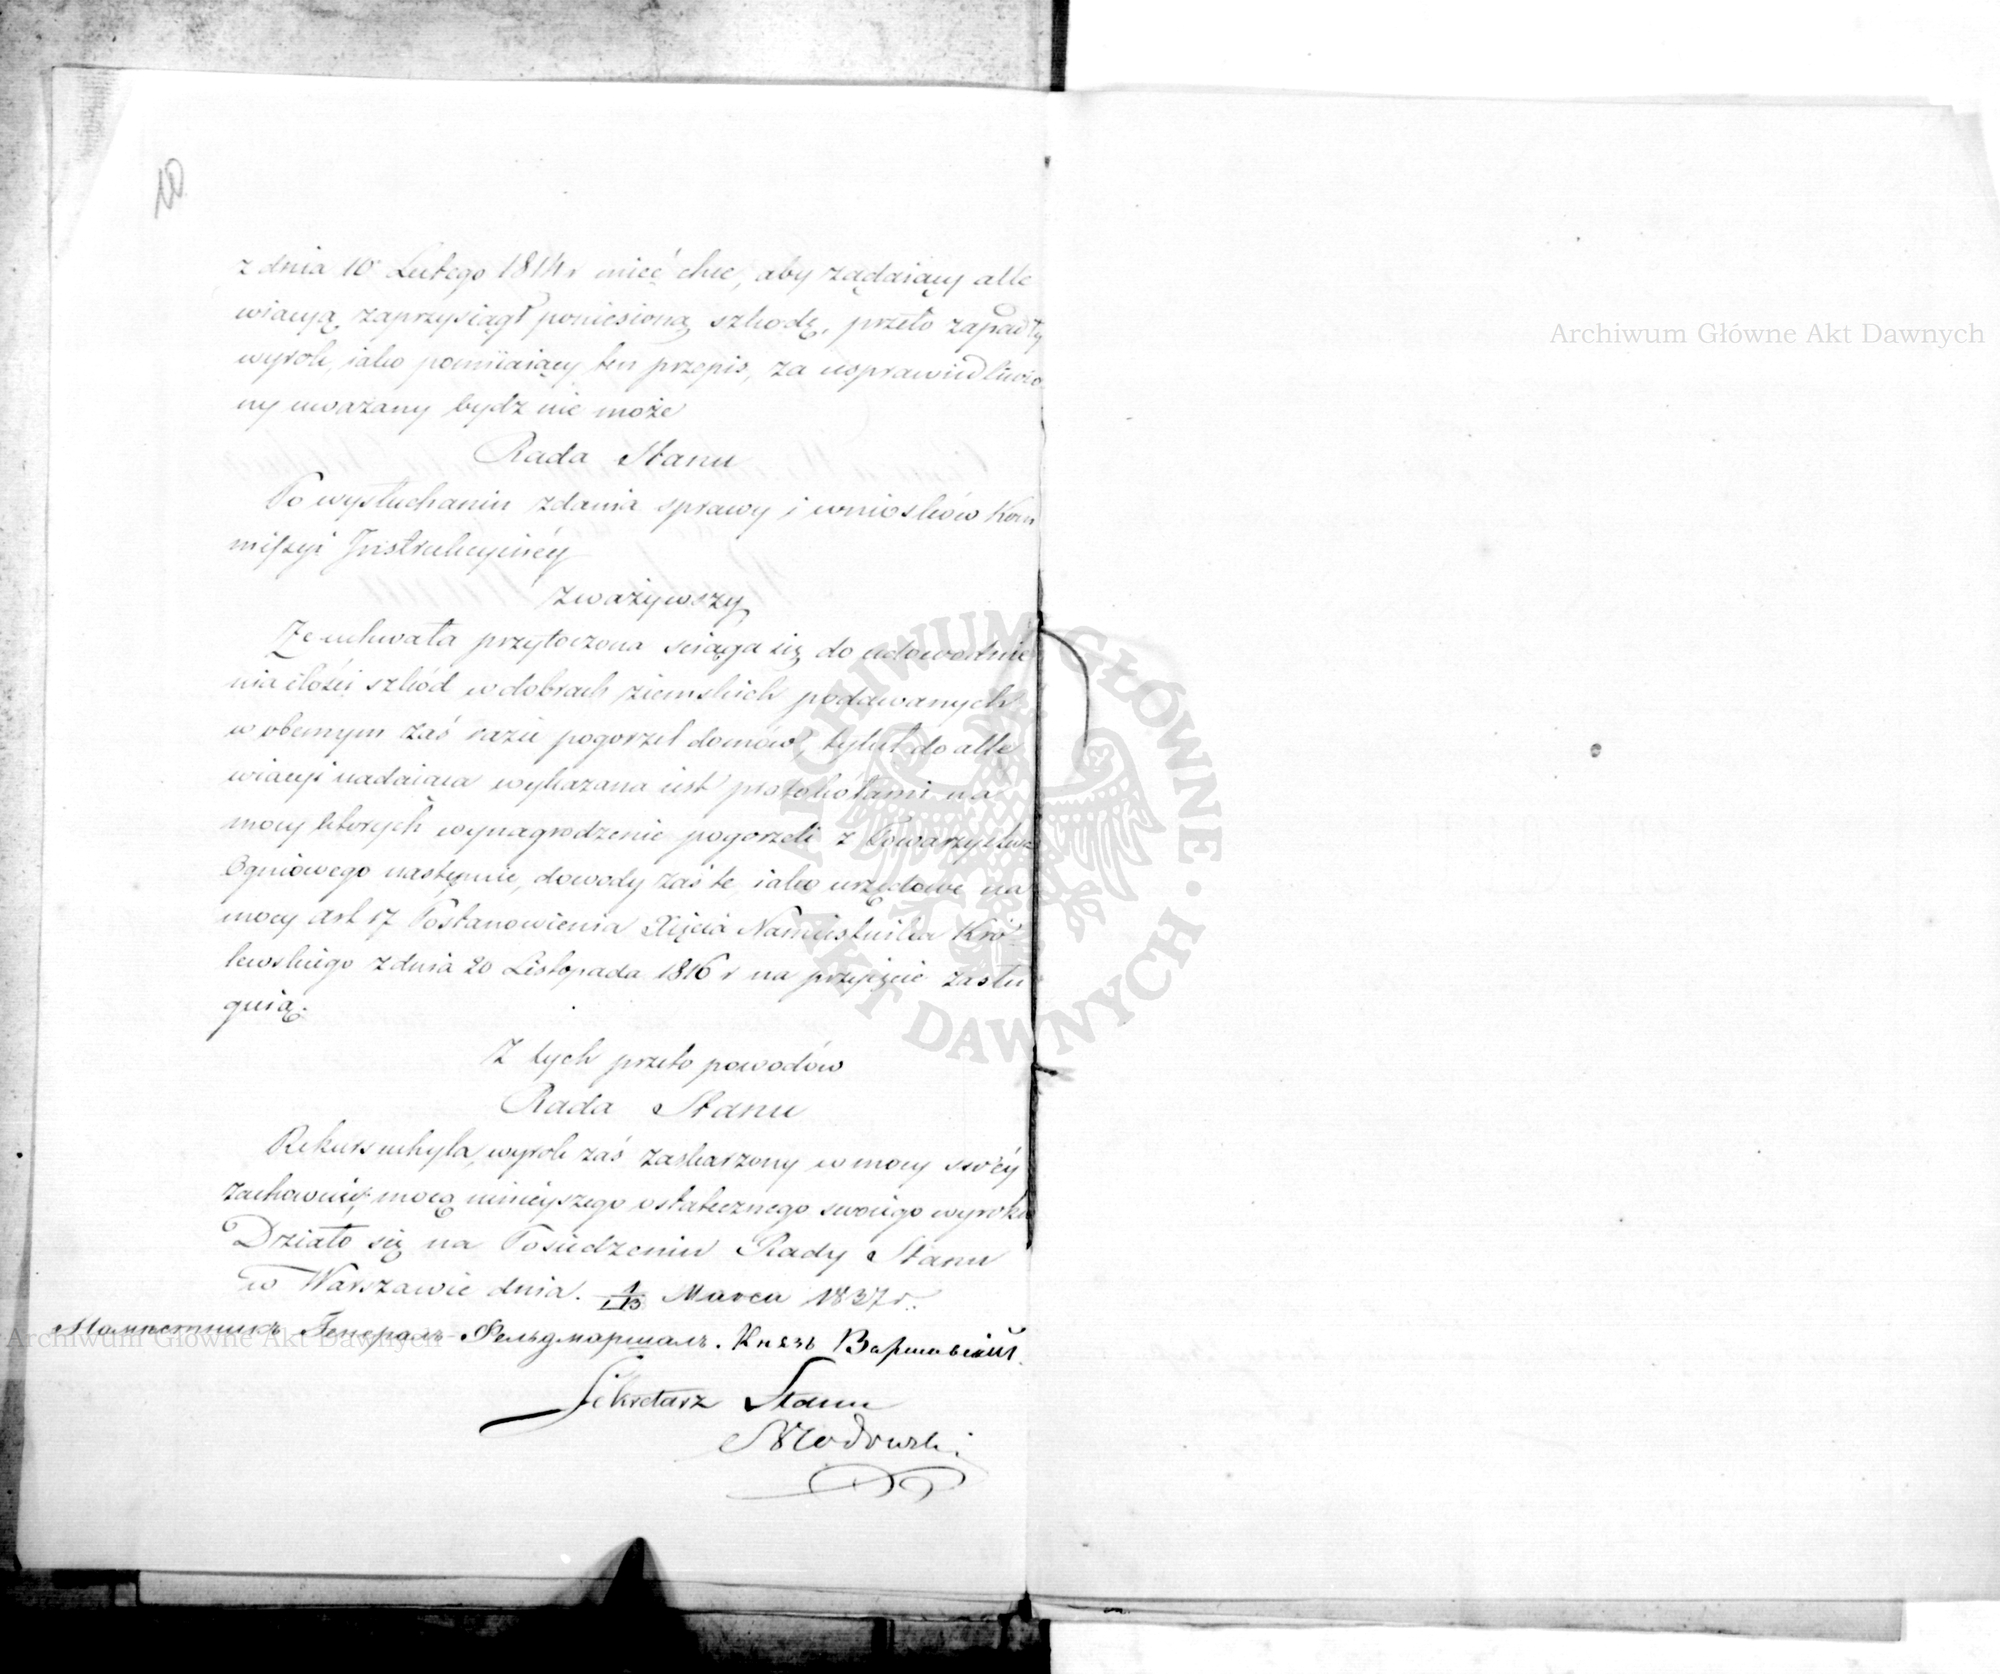 10
z dnia 10 Lutego 1814 r mieć chce, aby żądaiący alle
wiacyą, zaprzysiągł poniesioną szkodę, przeto zapadły
wyrok, iako pomiiaiący ten przepis, za usprawiedliwio
ny uważany bydz nie może
Rada Stanu
Po wysłuchaniu zdania sprawy i wniosków Kom
missyi Instrukcyinéy
zważywszy
Ze uchwała przytoczona sciąga się do udowodnie
nia ilości szkód w dobrach ziemskich podawanych
w obecnym zaś razie pogorzel domów, tytuł do alle
wiacyi nadaiąca wykazana iest protokółami na
mocy których wynagrodzenie pogorzeli z Towarzystwa
Ogniowego następuie, dowody zaś te, iako urzędowe na
mocy art 17 Postanowienia Xięcia Namiestnika Kró-
lewskiego z dnia 20 Listopada 1816 r na przyięcie zasłu
guią.
Z tych przeto powodów
Rada Stanu
Rekurs uchyla, wyrok zaś zaskarzony w mocy swéy
zachowuie, mocą ninieyszego ostatecznego swoiego wyroku
Działo się na Posiedzeniu Rady Stanu
w Warszawie dnia. 1/13 Marca 1837 r.
Намѣстникъ Генералъ-Фельдмаршалъ. Князь Варшавскій
Sekretarz Stanu
Archiwum Główne Akt Dawnych
Archiwum Główne Akt Dawnych
ARCHIWUM GŁÓWNE · AKT DAWNYCH ·